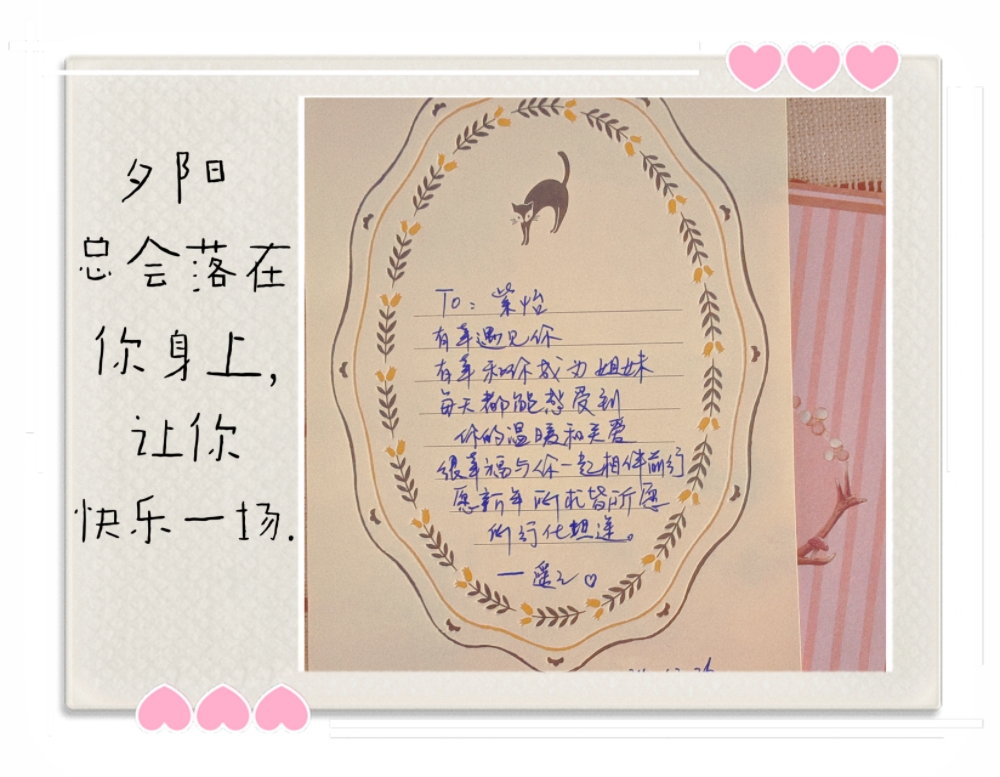 夕阳
总会落在
你身上,
让你
快乐一场.
To: 紫怡
有幸遇见你
有幸和你成为姐妹
每天都能感受到
你的温暖和关爱
很幸福与你一起相伴前行
愿新年所求皆所愿
所行化坦途。
一遥